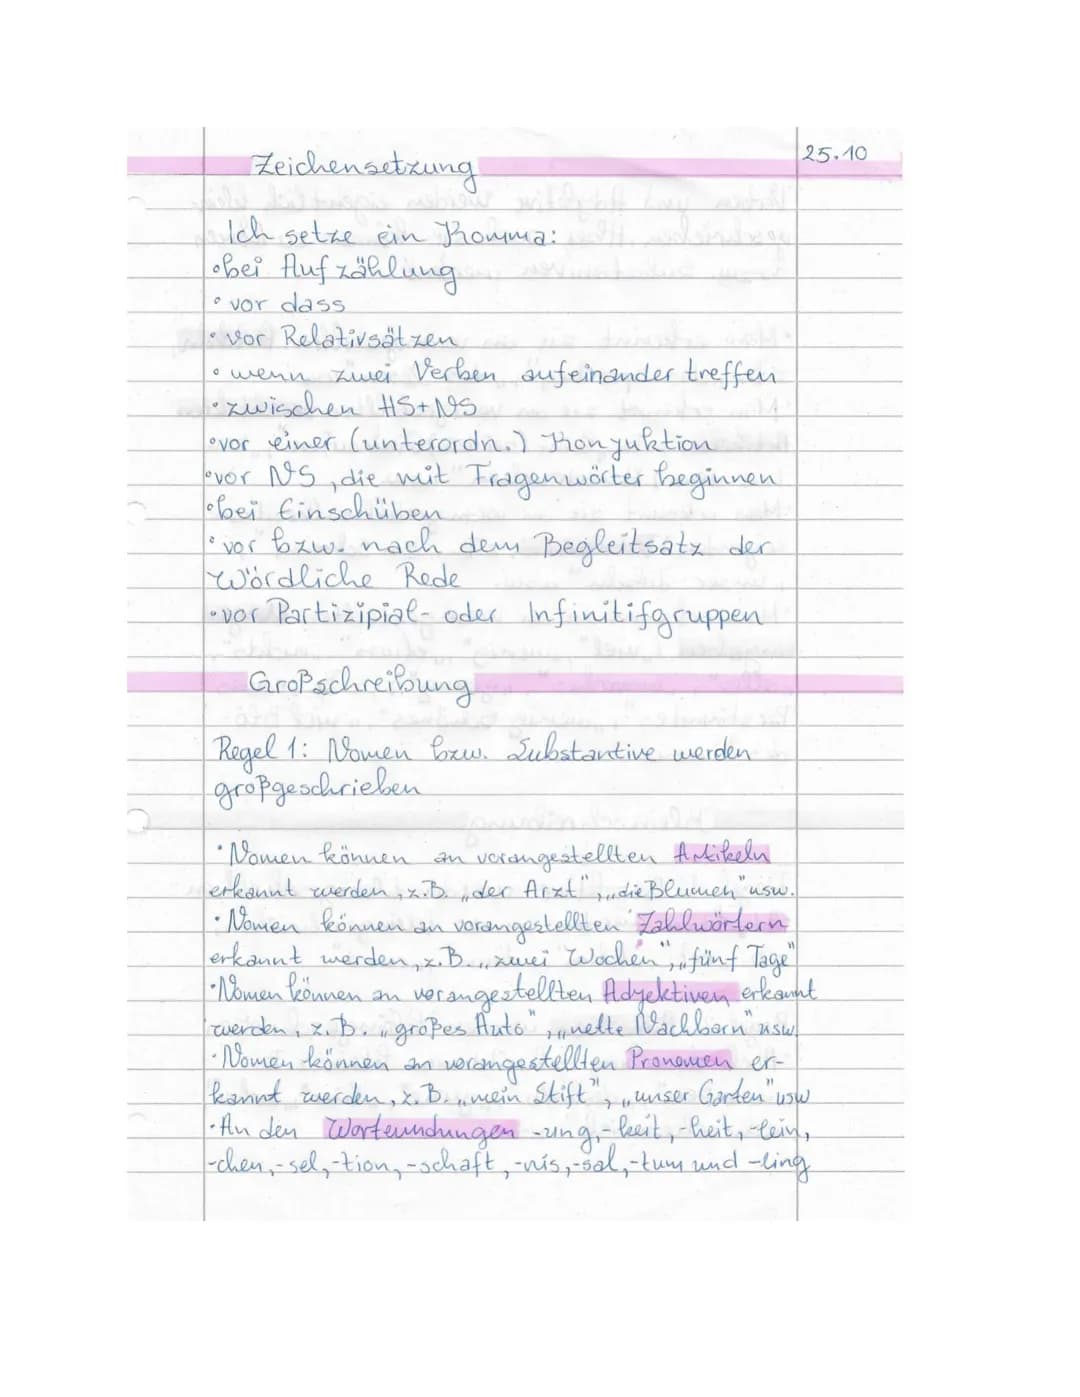 25.10
Zeichensetzung
Ich setze ein Komma:
• bei Aufzählung
• vor dass
• vor Relativsätzen
• wenn zwei Verben aufeinander treffen
• zwischen HS+NS
• vor einer (unterordn.) Konyuktion
• vor NS, die mit Fragenwörter beginnen
• bei Einschüben
• vor bzw. nach dem Begleitsatz der
Wördliche Rede
• vor Partizipial- oder Infinitifgruppen
Großschreibung
Regel 1: Nomen bzw. Substantive werden
großgeschrieben
• Nomen können an vorangestellten Artikeln
erkannt werden, z.B. „der Arzt", „die Blumen" usw.
• Nomen können an vorangestellten Zahlwörtern
erkannt werden, z.B. „zwei Wochen", „fünf Tage"
• Nomen können an vorangestellten Adyektiven erkannt
werden, z.B. „großes Auto", „nette Nachbarn" usw.
• Nomen können an vorangestellten Pronomen er-
kannt werden, z.B. „mein Stift", „unser Garten" usw
• An den Wortendungen -ung, -keit, -heit, -lein,
-chen, -sel, -tion, -schaft, -nis, -sal, -tum und -ling